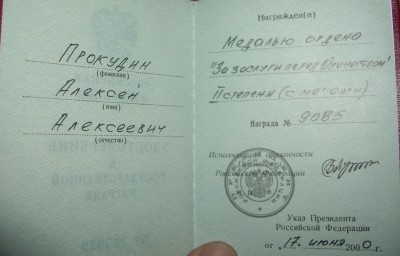 Прокудин
(фамилия)
Алексей
(имя)
Алексеевич
(отчество)
Награжден(а)
Медалью ордена
"За заслуги перед Отечеством"
II степени (с мечами)
Награда № 9085
Исполняющий обязанности
Президента
Российской Федерации
Указ Президента
Российской Федерации
от „17" июня 2000 г.